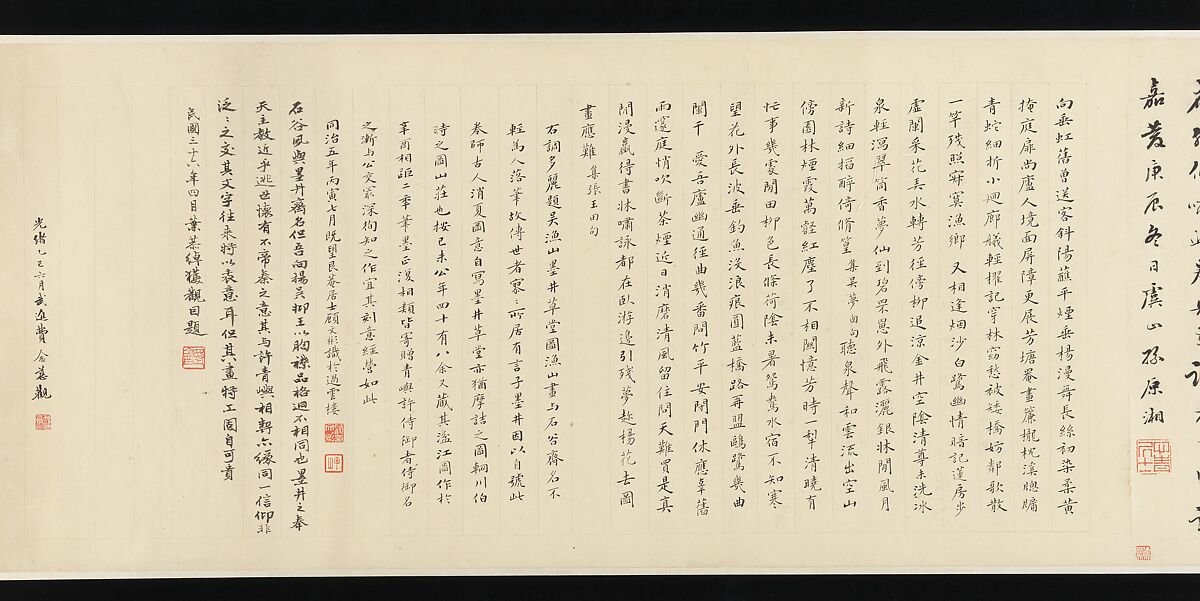 嘉慶庚辰冬日虞山孫原湘
向垂虹舊曾送客斜陽蘸平煙垂楊漫舞長絲初染柔黃
掩庭扉尚廬人境面屏障更展芳塘罨畫簾櫳枕溪牕牖
青蛇細折小迴廊娥輕擢記穿林窈愁被矮橋妨鄰歌散
一竿殘照寂寞漁鄉 又相逢烟沙白鷺幽情暗記蓮房步
虛闌采花弄水轉芳徑傍柳追涼金井空陰清尊未洗冰
泉輕瀉翠筒香夢仙到碧罘罳外飛露灑銀牀閒風月
新詩細掐醉倚脩篁 集吳夢窗句 聽泉聲和雲流出空山
傍園林煙霞萬壑紅塵了不相關憶芳時一犁清曉有
忙事幾處閒田柳色長條荷陰未暑鴛鴦水宿不知寒
望花外長波垂釣魚沒浪痕圓藍橋路再盟鷗鷺幾曲
闌干 愛吾廬幽通徑曲幾番問竹平安閉門休應辜舊
雨邃庭悄吹斷茶煙近日消磨清風留住問天難買是真
閒漫贏得書牀嘯詠都在臥游邊引殘夢趁楊花去圖
畫應難 集張玉田句
右調多麗題吳漁山墨井草堂圖漁山畫与石谷齊名不
輕為人落筆故傳世者寥〻所居有言子墨井因以自號此
卷師古人消夏圖意自寫墨井草堂亦猶摩詰之圖輞川伯
時之圖山莊也按己未公年四十有八余又藏其湓江圖作於
辛酉相距二年筆墨正復相類皆寄贈青嶼許侍御者侍御名
之漸与公交最深徇知之作宜其刻意經營如此
同治五年丙寅七月既望艮菴居士顧文彬識於過雲樓
石谷風與墨井齊名但吾向揚吳抑王以胸襟品格迥不相同也墨井之奉
天主教近乎逃世懷有不帝秦之意其与許青嶼相契亦緣同一信仰非
泛〻之交其文字往來特以表意耳但其畫特工固自可貴
民國三十六年四月葉恭綽獲觀因題
光緒乙巳六月武進費念慈觀